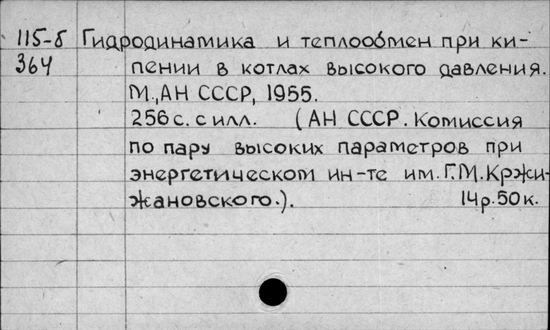 115-б Гидродинамика и теплообмен при ки-
364 пении в котлах высокого давления.
М., АН СССР, 1955.
256 с. с илл. (АН СССР. Комиссия
по пару высоких параметров при
энергетическом ин-те им. Г.М. Кржи-
жановского.). 14р. 50к.